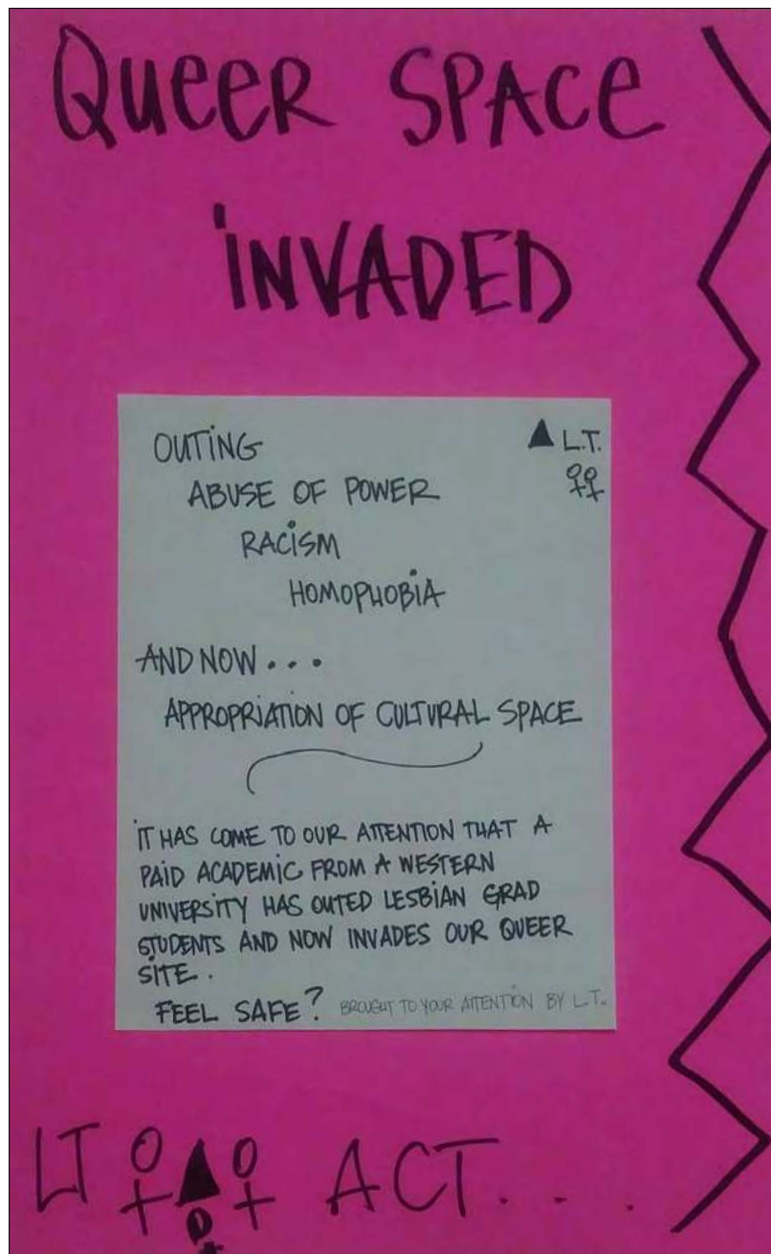 QUEER SPACE
INVADED
OUTING
▲ L.T.
ABUSE OF POWER
⚢
RACISM
HOMOPHOBIA
AND NOW...
APPROPRIATION OF CULTURAL SPACE
IT HAS COME TO OUR ATTENTION THAT A
PAID ACADEMIC FROM A WESTERN
UNIVERSITY HAS OUTED LESBIAN GRAD
STUDENTS AND NOW INVADES OUR QUEER
SITE.
FEEL SAFE? BROUGHT TO YOUR ATTENTION BY L.T.
LT ♀▲♀ ACT...